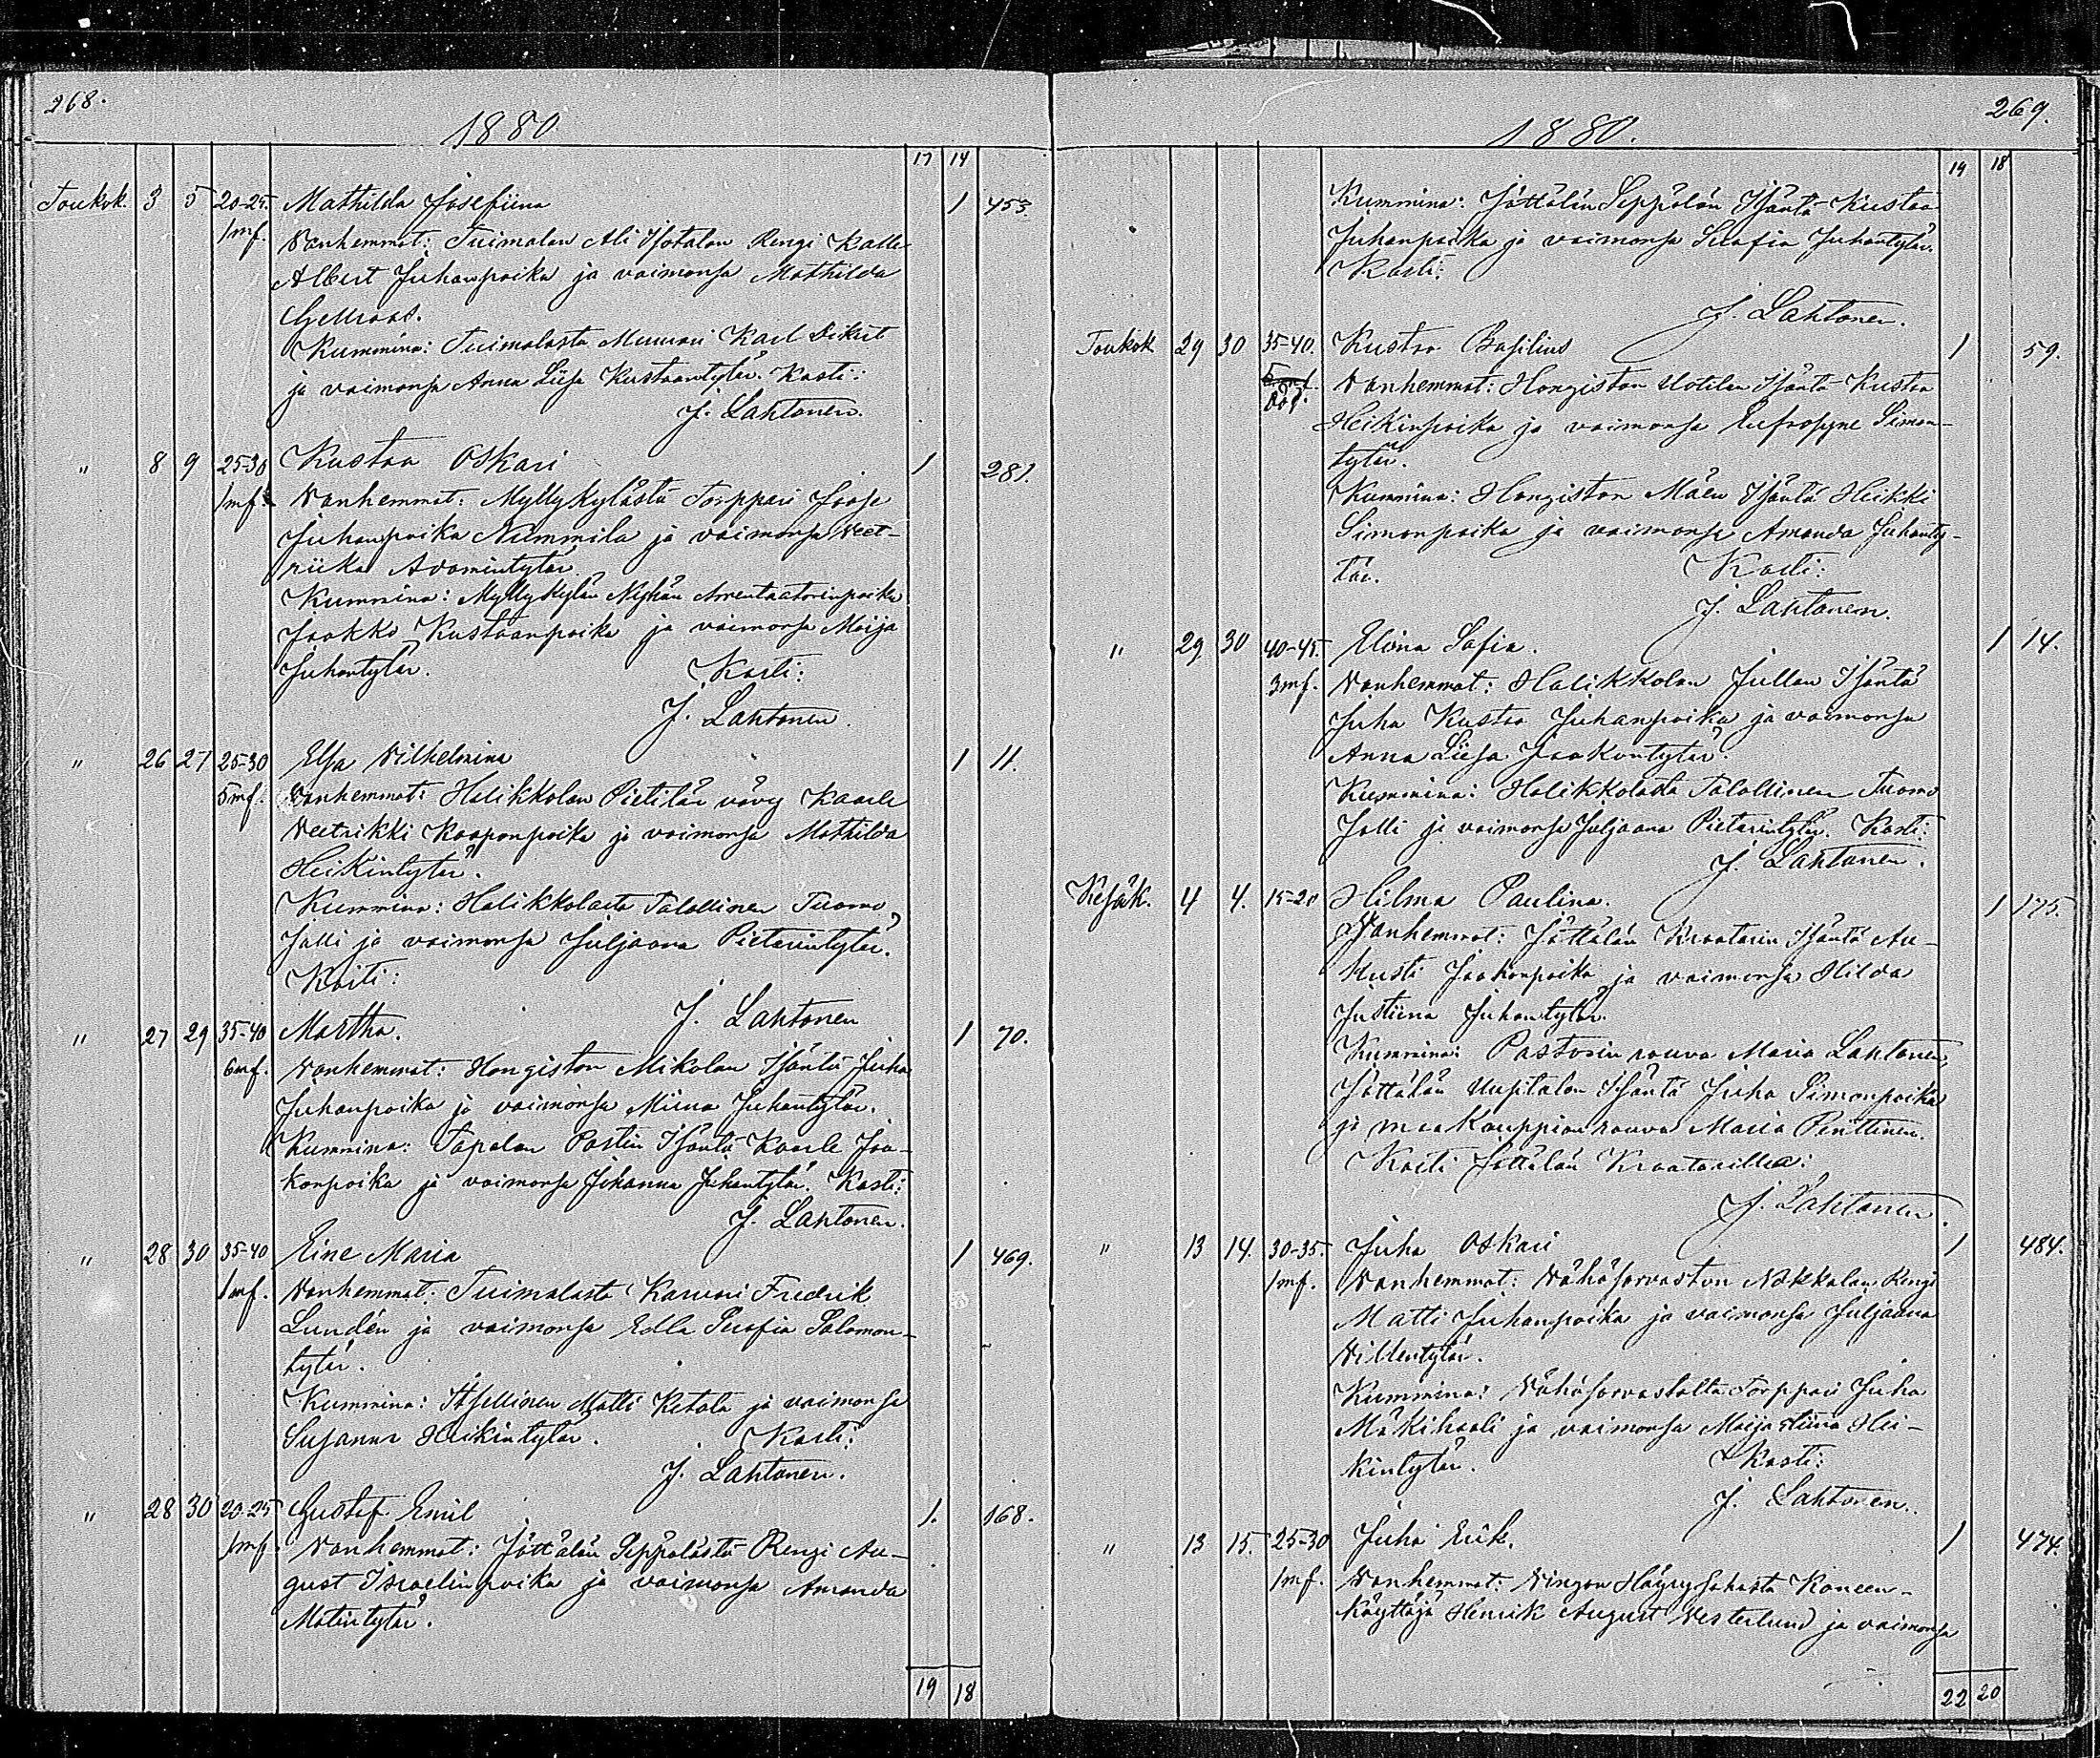 268.
1880
17 14
Toukok. 3 5 20-25. Mathilda Josefiina 1 453.
1 mf. Vanhemmat: Tuimalan Ali Isotalon Rengi Kalle
Albert Juhanpoika ja vaimonsa Mathilda
Kummina: Tuimalasta Muurari Karl Sikut
ja vaimonsa Anna Liisa Kustaantytär. Kasti:
J. Lahtonen.
" 8 9 25-30 Kustaa Oskari 1 281.
1 mf. Vanhemmat: Myllykylästä Torppari Joose
Juhanpoika Nummila ja vaimonsa Veet-
riika Adamintytär
Kummina: Myllykylän Nyhän Arentaatorinpoika
Jaakko Kustaanpoika ja vaimonsa Maija
Juhantytär. Kasti:
J. Lahtonen.
" 26 27 25-30 Elsa Vilhelmina 1 11.
5 mf. Vanhemmat: Halikkolan Pietilän vävy Kaarle
Veetrikki Kaaponpoika ja vaimonsa Mathilda
Heikintytär.
Kummina: Halikkolasta Talollinen Tuomo
Jalli ja vaimonsa Juljaana Pietarintytär.
Kasti:
J. Lahtonen
" 27 29 35-40 Martha. 1 70.
6 mf. Vanhemmat: Hongiston Mikolan Isäntä Juha
Juhanpoika ja vaimonsa Miina Juhantytär.
Kummina: Tapalan Pastin Isäntä Kaarle Jaa-
konpoika ja vaimonsa Johanna Juhantytär. Kasti:
J. Lahtonen.
" 28 30 35-40 Eine Maria 1 469.
1 mf. Vanhemmat: Tuimalasta Karvari Fredrik
Lundén ja vaimonsa Edla Serafia Salomon-
tytär.
Kummina: Itsellinen Matti Ketola ja vaimonsa
Susanna Heikintytär. Kasti:
J. Lahtonen.
" 28 30 20-25 Gustaf Emil 1. 168.
1 mf. Vanhemmat: Jättälän Seppälästä Rengi Au-
gust Israelinpoika ja vaimonsa Amanda
Matintytär.
19 18
269.
1880.
19 18
Kummina: Jättälän Seppälän Isäntä Kustaa
Juhanpoika ja vaimonsa Serafia Juhantytär.
Kasti:
J. Lahtonen.
Toukok 29 30 35-40. Kustaa Basilius 1 59.
Vanhemmat: Hongiston Uotilan Isäntä Kustaa
Heikinpoika ja vaimonsa Eufrosyne Simon-
tytär.
Kummina: Hongiston Mäen Isäntä Heikki
Simonpoika ja vaimonsa Amanda Juhanty-
tär. Kasti:
J. Lahtonen.
" 29 30 40-45. Elina Sofia. 1 14.
3 mf. Vanhemmat: Halikkolan Jullan Isäntä
Juha Kustaa Juhanpoika ja vaimonsa
Anna Liisa Jaakontytär.
Kummina: Halikkolasta Talollinen Tuomo
Jalli ja vaimonsa Juljaana Pietarintytär. Kasti:
J. Lahtonen.
Kesäk. 4 4. 15-20 Hilma Paulina. 1 175.
Vanhemmat: Jättälän Kraatarin Isäntä Au-
kusti Jaakonpoika ja vaimonsa Hilda
Justiina Juhantytär.
Kummina: Pastorin rouva Maria Lahtonen,
Jättälän Uusitalon Isäntä Juha Simonpoika
ja maakauppian rouva Maria Penttinen.
Kasti Jättälän Kraatarilla:
J. Lahtonen.
" 13 14. 30-35. Juha Oskari 1 484.
1 mf. Vanhemmat: Vähäsorvaston Nokkalan Rengi
Matti Juhanpoika ja vaimonsa Juljaana
Villentytär.
Kummina: Vähäsorvastolta Torppari Juha
Mäkihaali ja vaimonsa Maija Stiina Hei-
kintytär. Kasti:
J. Lahtonen.
" 13 15. 25-30 Juho Erik. 1 474.
1 mf. Vanhemmat: Vingon Höyrysahasta Koneen-
käyttäjä Henrik August Vesterlund ja vaimonsa
22 20